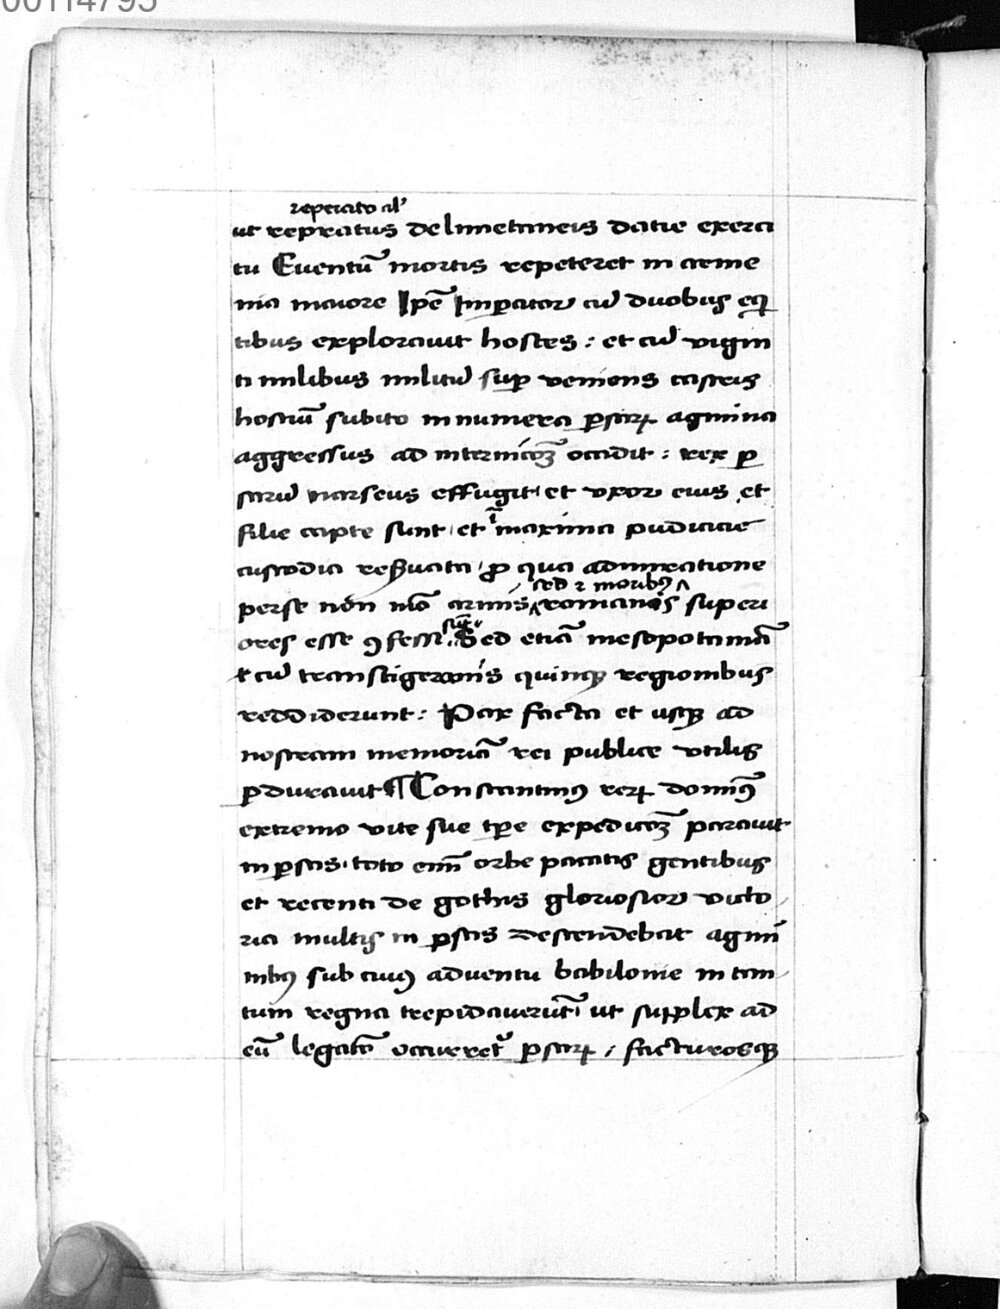 00114795
reperato al'
ut repratus de limetaneis datie exerci
tu Euentū mortis repeteret in arme
nia maiore Ipē Imꝑator cū duobus eq
tibus explorauit hostes : et cū vigin
ti milibus militū suꝑ veniens castris
hostiū subito innumera ꝑsarꝝ agmina
aggressus ad internicōꝫ occidit : rex ꝑ
sarū narseus effugit et vxor eius et
filie capte sunt et ī maxima pudicicie
custodia reseruata ꝑ qua admiratione
sed ⁊ moribꝰ
perse non mō armis romanis superi
sūt
ores esse ꝯfessi . Sed etiā mesopotamiā
cū transtigeranis quinqꝫ regionibus
reddiderunt : Pax facta et usqꝫ ad
nostram memoriā rei publice vtilis
ꝑdurauit ¶ Constantinꝰ rerꝝ dominꝰ
extremo vite sue tꝑe expedicōꝫ parauit
in ꝑsas . toto enī orbe pacatis gentibus
et recenti de gothis gloriosior victo
ria multis in ꝑsas descendebat agmi
nibꝰ sub cuiꝰ aduentu babilonie in tan
tum regna trepidauerūt ut supplex ad
eū legatō occurret ꝑsarꝝ / facturosqꝫ